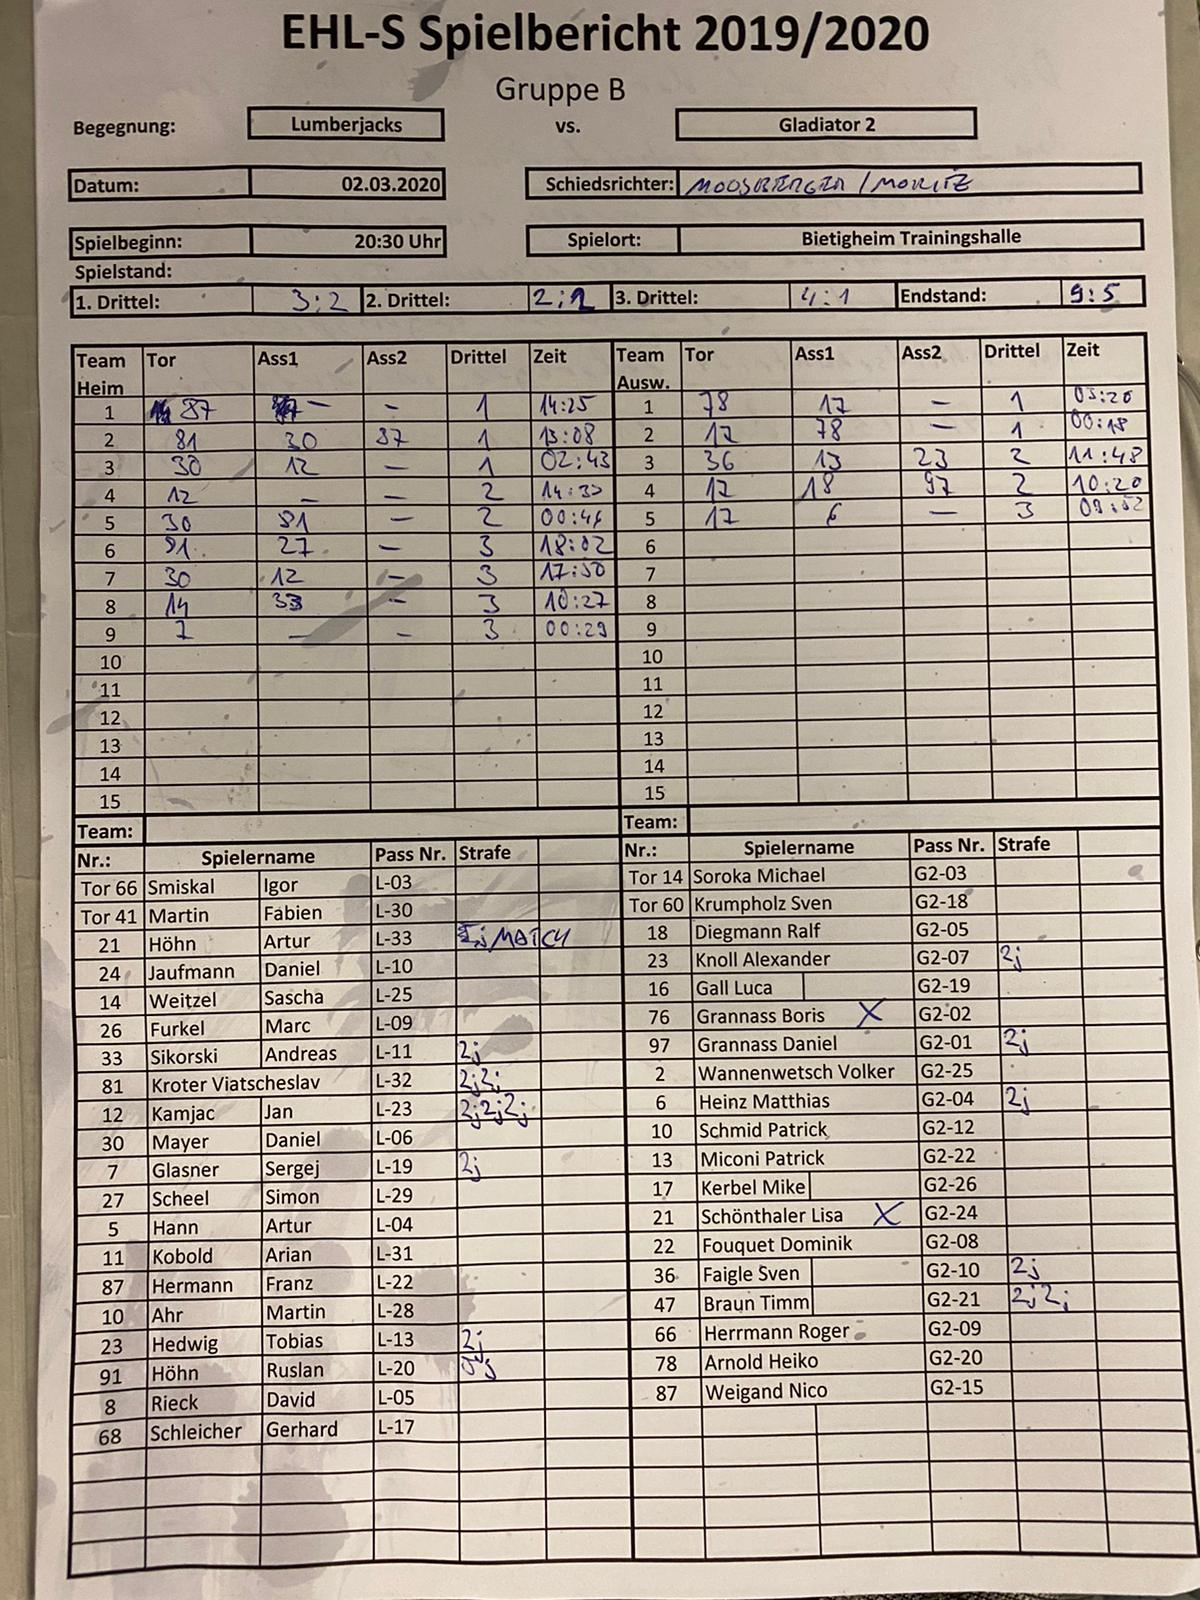 EHL-S Spielbericht 2019/2020
Gruppe B
Begegnung: Lumberjacks vs. Gladiator 2
Datum: 02.03.2020 Schiedsrichter: MOOSBERGER / MORITZ
Spielbeginn: 20:30 Uhr Spielort: Bietigheim Trainingshalle
Spielstand:
1. Drittel: 3:2 2. Drittel: 2:2 3. Drittel: 4:1 Endstand: 9:5
Team Tor Ass1 Ass2 Drittel Zeit Team Tor Ass1 Ass2 Drittel Zeit
Heim Ausw.
1 87 – – 1 14:25 1 78 17 – 1 03:20
2 81 30 87 1 13:08 2 17 78 – 1 00:18
3 30 12 – 1 02:43 3 36 13 23 2 11:48
4 12 – – 2 4 17 18 97 2 10:20
5 30 – 2 5 17 6 – 3
6 27 – 3 18:02 6
7 30 12 – 3 17:50 7
8 14 33 – 3 10:27 8
9 7 – – 3 00:29 9
10 10
11 11
12 12
13 13
14 14
15 15
Team: Team:
Nr.: Spielername Pass Nr. Strafe Nr.: Spielername Pass Nr. Strafe
Tor 66 Smiskal Igor L-03 Tor 14 Soroka Michael G2-03
Tor 41 Martin Fabien L-30 Tor 60 Krumpholz Sven G2-18
21 Höhn Artur L-33 MATCH 18 Diegmann Ralf G2-05
24 Jaufmann Daniel L-10 23 Knoll Alexander G2-07 2j
14 Weitzel Sascha L-25 16 Gall Luca G2-19
26 Furkel Marc L-09 76 Grannass Boris X G2-02
33 Sikorski Andreas L-11 2j 97 Grannass Daniel G2-01 2j
81 Kroter Viatscheslav L-32 2j2j 2 Wannenwetsch Volker G2-25
12 Kamjac Jan L-23 2j2j2j 6 Heinz Matthias G2-04 2j
30 Mayer Daniel L-06 10 Schmid Patrick G2-12
7 Glasner Sergej L-19 2j 13 Miconi Patrick G2-22
27 Scheel Simon L-29 17 Kerbel Mike G2-26
5 Hann Artur L-04 21 Schönthaler Lisa X G2-24
11 Kobold Arian L-31 22 Fouquet Dominik G2-08
87 Hermann Franz L-22 36 Faigle Sven G2-10 2j
10 Ahr Martin L-28 47 Braun Timm G2-21 2j2j
23 Hedwig Tobias L-13 2j 66 Herrmann Roger G2-09
91 Höhn Ruslan L-20 78 Arnold Heiko G2-20
8 Rieck David L-05 87 Weigand Nico G2-15
68 Schleicher Gerhard L-17